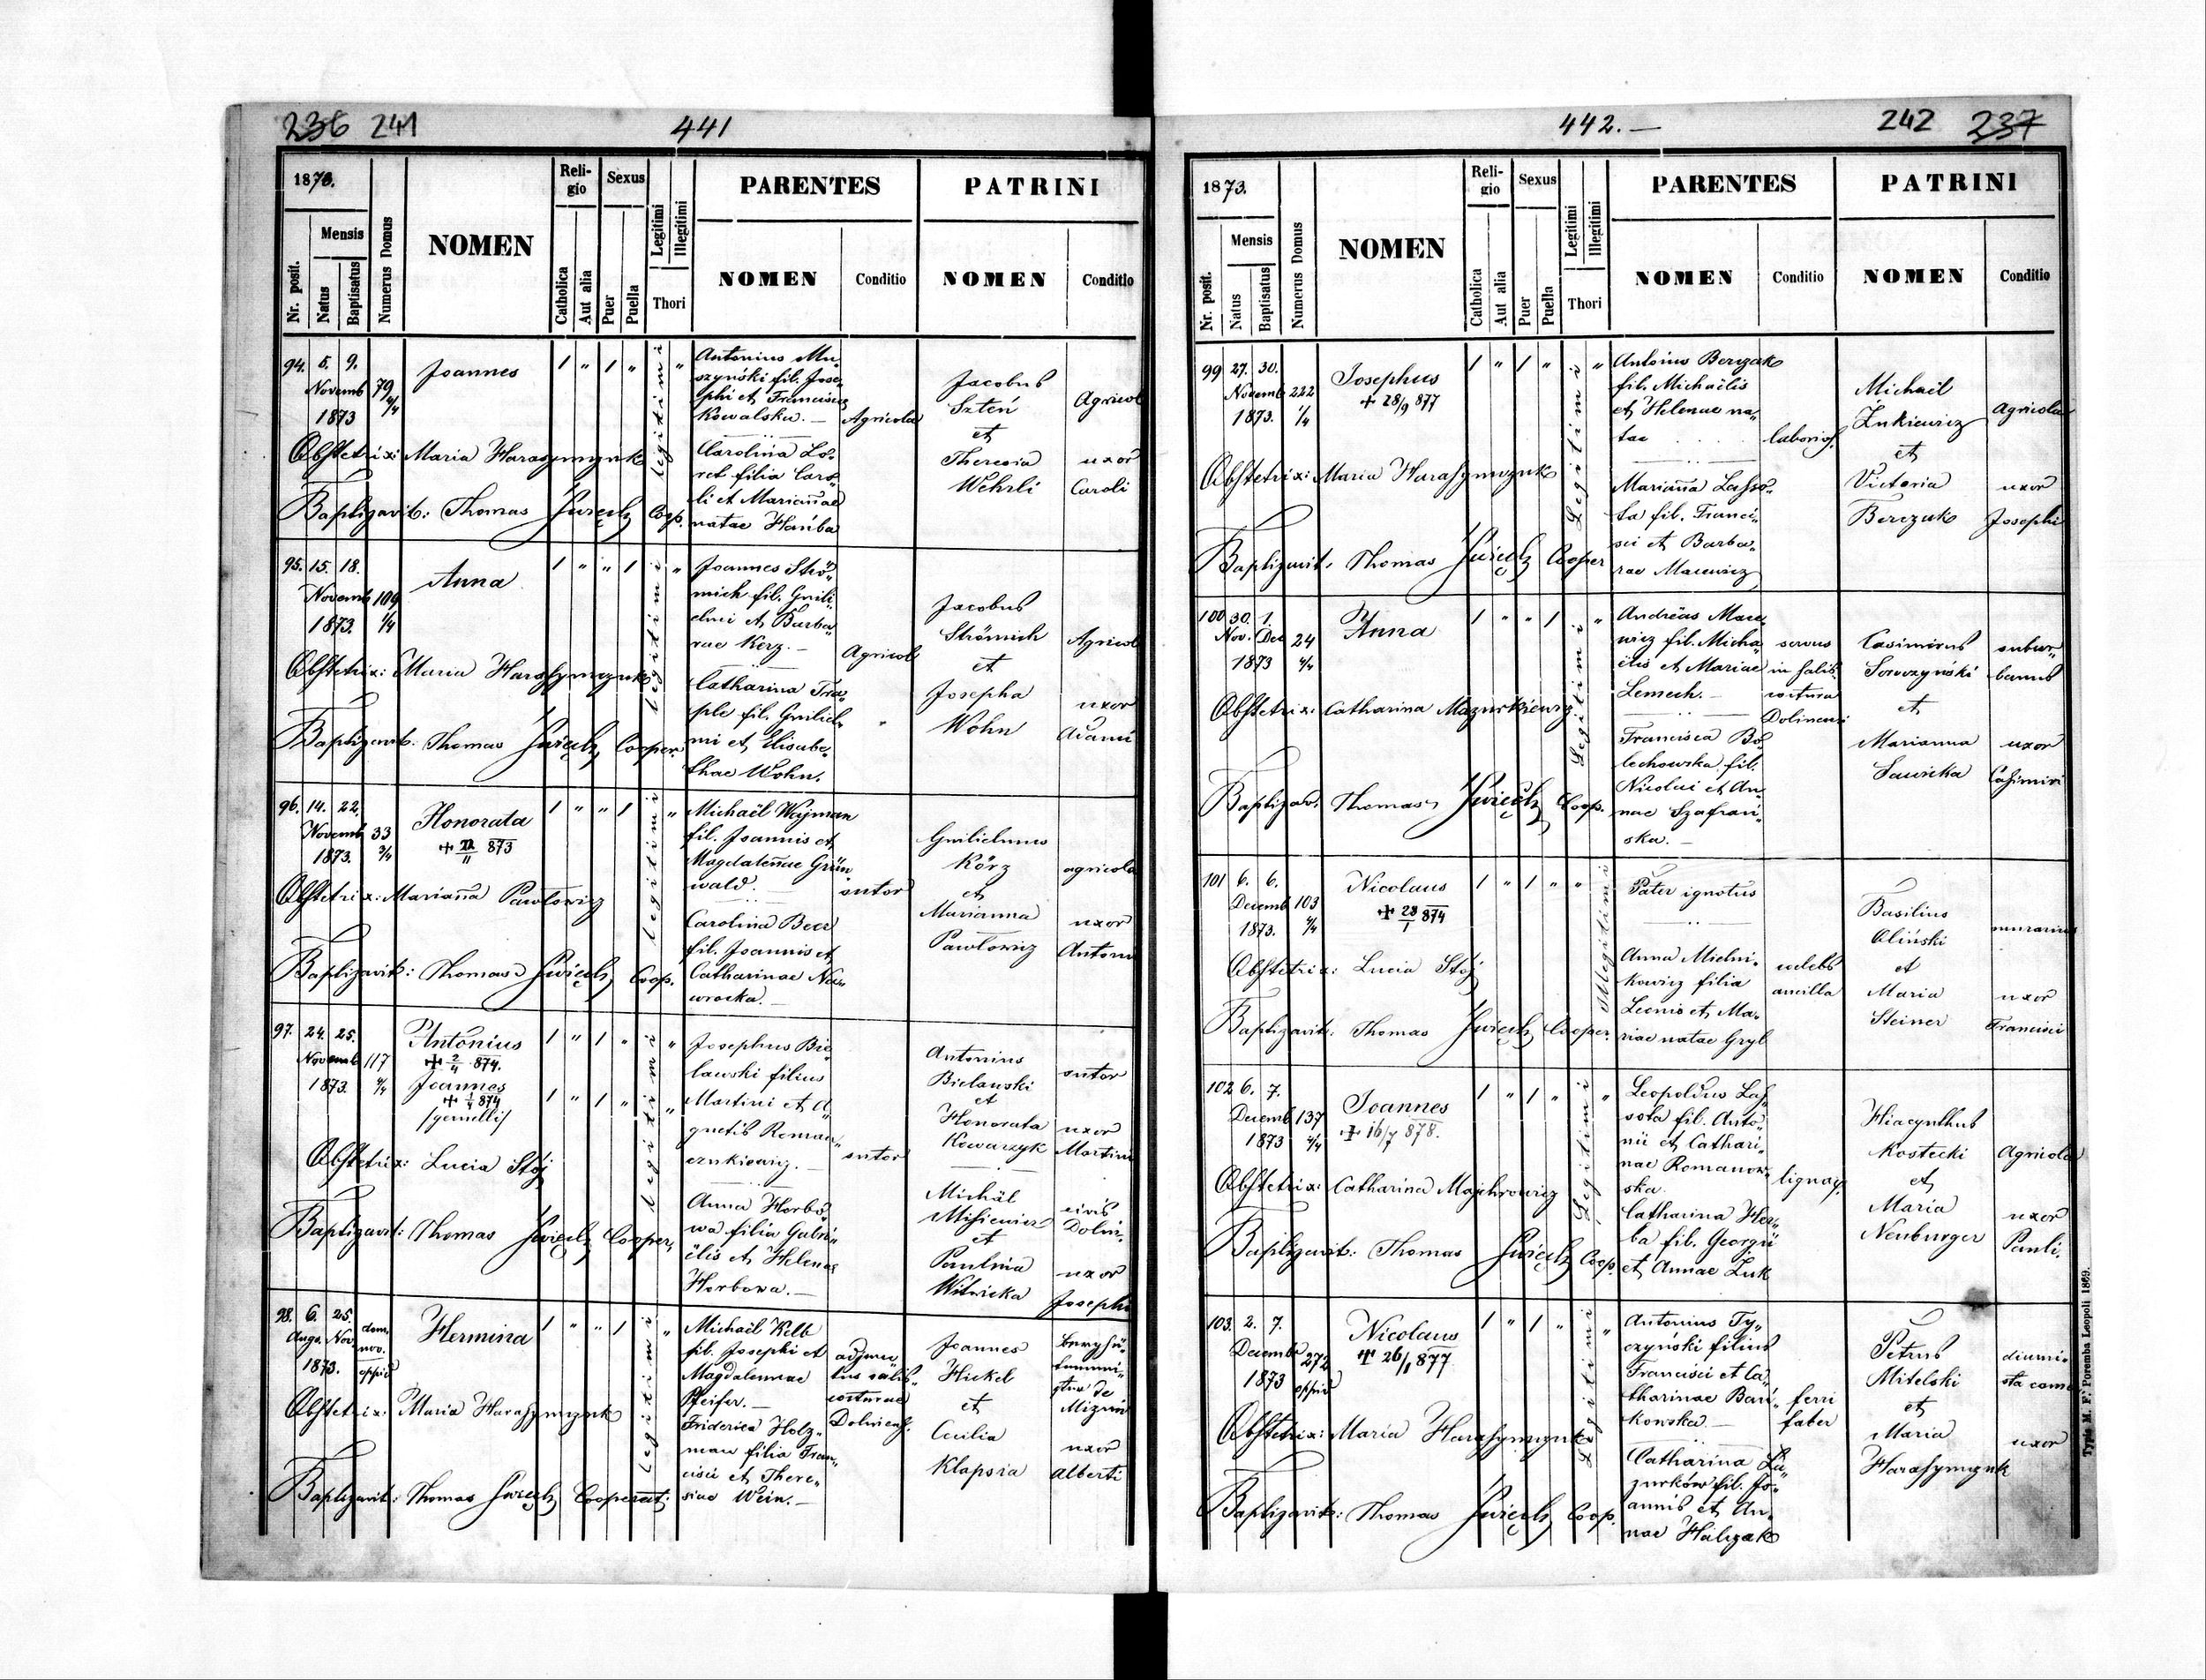 236 241
441
1873.
Nr. posit.
Mensis
Natus
Baptisatus
Numerus Domus
NOMEN
Reli-
gio
Catholica
Aut alia
Sexus
Puer
Puella
Legitimi
Illegitimi
Thori
PARENTES
NOMEN
Conditio
PATRINI
NOMEN
Conditio
94. 5. 9.
Novemb
1873
79
4/4
Joannes
1 " 1 "
legitimi
"
Antonius Mu„
szyński fil. Jose„
phi et Francisca
Kowalska. —
Carolina Lo„
ret filia Caro„
li et Mariannae
natae Hanba
Agricola
Jacobus
Szteń
et
Theresia
Wehrli
Agricol
uxor
Caroli
Obstetrix: Maria Harasymczuk
Baptizavit: Thomas Święch Coop.
95. 15. 18.
Novemb
1873.
109
1/4
Anna
1 " " 1
legitimi
"
Joannes Strö„
mich fil. Guili„
elmi et Barba„
rae Kerz. —
Catharina Tra„
ple fil. Guiliel„
mi et Elisabe„
thae Wohn.
Agricol
Jacobus
Strömich
et
Josepha
Wohn
Agricol
uxor
Adami
Obstetrix: Maria Harasymczuk
Baptizavit: Thomas Święch Cooper.
96. 14. 22.
Novemb
1873.
33
3/4
Honorata
+ 22/11 873
1 " " 1
legitimi
"
Michaël Wajman
fil. Joannis et
Magdalenae Grün
wald. —
Carolina Beer
fil. Joannis et
Catharinae Na„
wrocka. —
sutor
Guilielmus
Körz
et
Marianna
Pawłowicz
agricola
uxor
Antoni
Obstetrix: Marianna Pawłowicz
Baptizavit: Thomas Święch Coop.
97. 24. 25.
Novemb
1873.
117
4/4
Antonius
+ 2/4 874.
Joannes
+ 1/4 874
/gemelli/
1 " 1 "
1 " 1 "
legitimi
"
"
Josephus Bie„
lawski filius
Martini et A„
gnetis Roman„
czukiewicz. —
Anna Horbo„
wa filia Gabri„
ëlis et Helenae
Horbowa. —
sutor
Antonius
Bielawski
et
Honorata
Kowarzyk
sutor
uxor
Martini
Michäl
Misiewicz
et
Paulina
Witwicka
civis
Dolin„
uxor
Josephi
Obstetrix: Lucia Stój
Baptizavit: Thomas Święch Cooper.
98. 6. 25.
Augu. Nov.
1873.
dom.
nov.
oppid
Hermina
1 " " 1
legitimi
"
Michaël Kelb
fil. Josephi et
Magdalennae
Pfeifer. —
Friderica Holz„
man filia Fran„
cisci et There„
siae Wein. —
adjunc
tus salis„
cocturae
Doliniens.
Joannes
Hickel
et
Cecilia
Klapsia
de
Mizuń
uxor
Alberti
Obstetrix: Maria Harasymczuk
Baptizavit: Thomas Święch Cooperat:
442. —
242 237
1873.
Nr. posit.
Mensis
Natus
Baptisatus
Numerus Domus
NOMEN
Reli-
gio
Catholica
Aut alia
Sexus
Puer
Puella
Legitimi
Illegitimi
Thori
PARENTES
NOMEN
Conditio
PATRINI
NOMEN
Conditio
99 27. 30.
Novemb
1873.
222
1/4
Josephus
+ 28/9 877
1 " 1 "
Legitimi
"
Antoius Berczak
fil. Michaëlis
et Helenae na„
tae . . . .
Marianna Lasso„
ta fil. Franci„
sci et Barba„
rae Macewicz
laborios.
Michaël
Żukiewicz
et
Victoria
Berczak
Agricola
uxor
Josephi
Obstetrix: Maria Harasymczuk
Baptizavit. Thomas Święch Cooper
100 30. 1.
Nov. Dec
1873
24
4/4
Anna
1 " " 1
Legitimi
"
Andrëas Mace„
wicz fil. Micha„
ëlis et Mariae
Lemech. —
Francisca Bo„
lechowska fil.
Nicolai et An„
nae Szafrań„
ska. —
servus
in salis
coctura
Dolinens
Casimirus
Soroczyński
et
Marianna
Sawicka
subur„
banus
uxor
Casimiri
Obstetrix: Catharina Mazurkiewicz
Baptizav. Thomas Święch Coop.
101 6. 6.
Decemb
1873.
103
4/4
Nicolaus
+ 28/1 874
1 " 1 " "
Illegitimi
Pater ignotus
Anna Mielni„
kowicz filia
Leonis et Ma„
riae natae Gryl
celebs
ancilla
Basilius
Oliński
et
Maria
Steiner
murarius
uxor
Francisci
Obstetrix: Lucia Stój
Baptizavit: Thomas Święch Cooper.
102 6. 7.
Decemb
1873
137
4/4
Joannes
+ 16/7 878.
1 " 1 "
Legitimi
"
Leopoldus Las„
sota fil. Anto„
nii et Cathari„
nae Romanow„
ska.
Catharina Her„
ba fil. Georgii
et Annae Luk
lignar.
Hiacynthus
Kostecki
et
Maria
Neuburger
Agricola
uxor
Pauli.
Obstetrix: Catharina Majchrowicz
Baptizavit: Thomas Święch Coop.
103. 2. 7.
Decemb
1873
272
oppid
Nicolaus
+ 26/1 877
1 " 1 "
Legitimi
"
Antonius Ty„
czyński filius
Francisci et Ca„
tharinae Bań„
kowska —
Catharina La„
zurków fil. Jo„
annis et An„
nae Halczak
ferri
faber
Petrus
Mitelski
et
Maria
Harasymczuk
diurni„
sta came
uxor
Obstetrix: Maria Harasymczuk
Baptizavit: Thomas Święch Coop.
Typis M. F. Poremba Leopoli 1869.